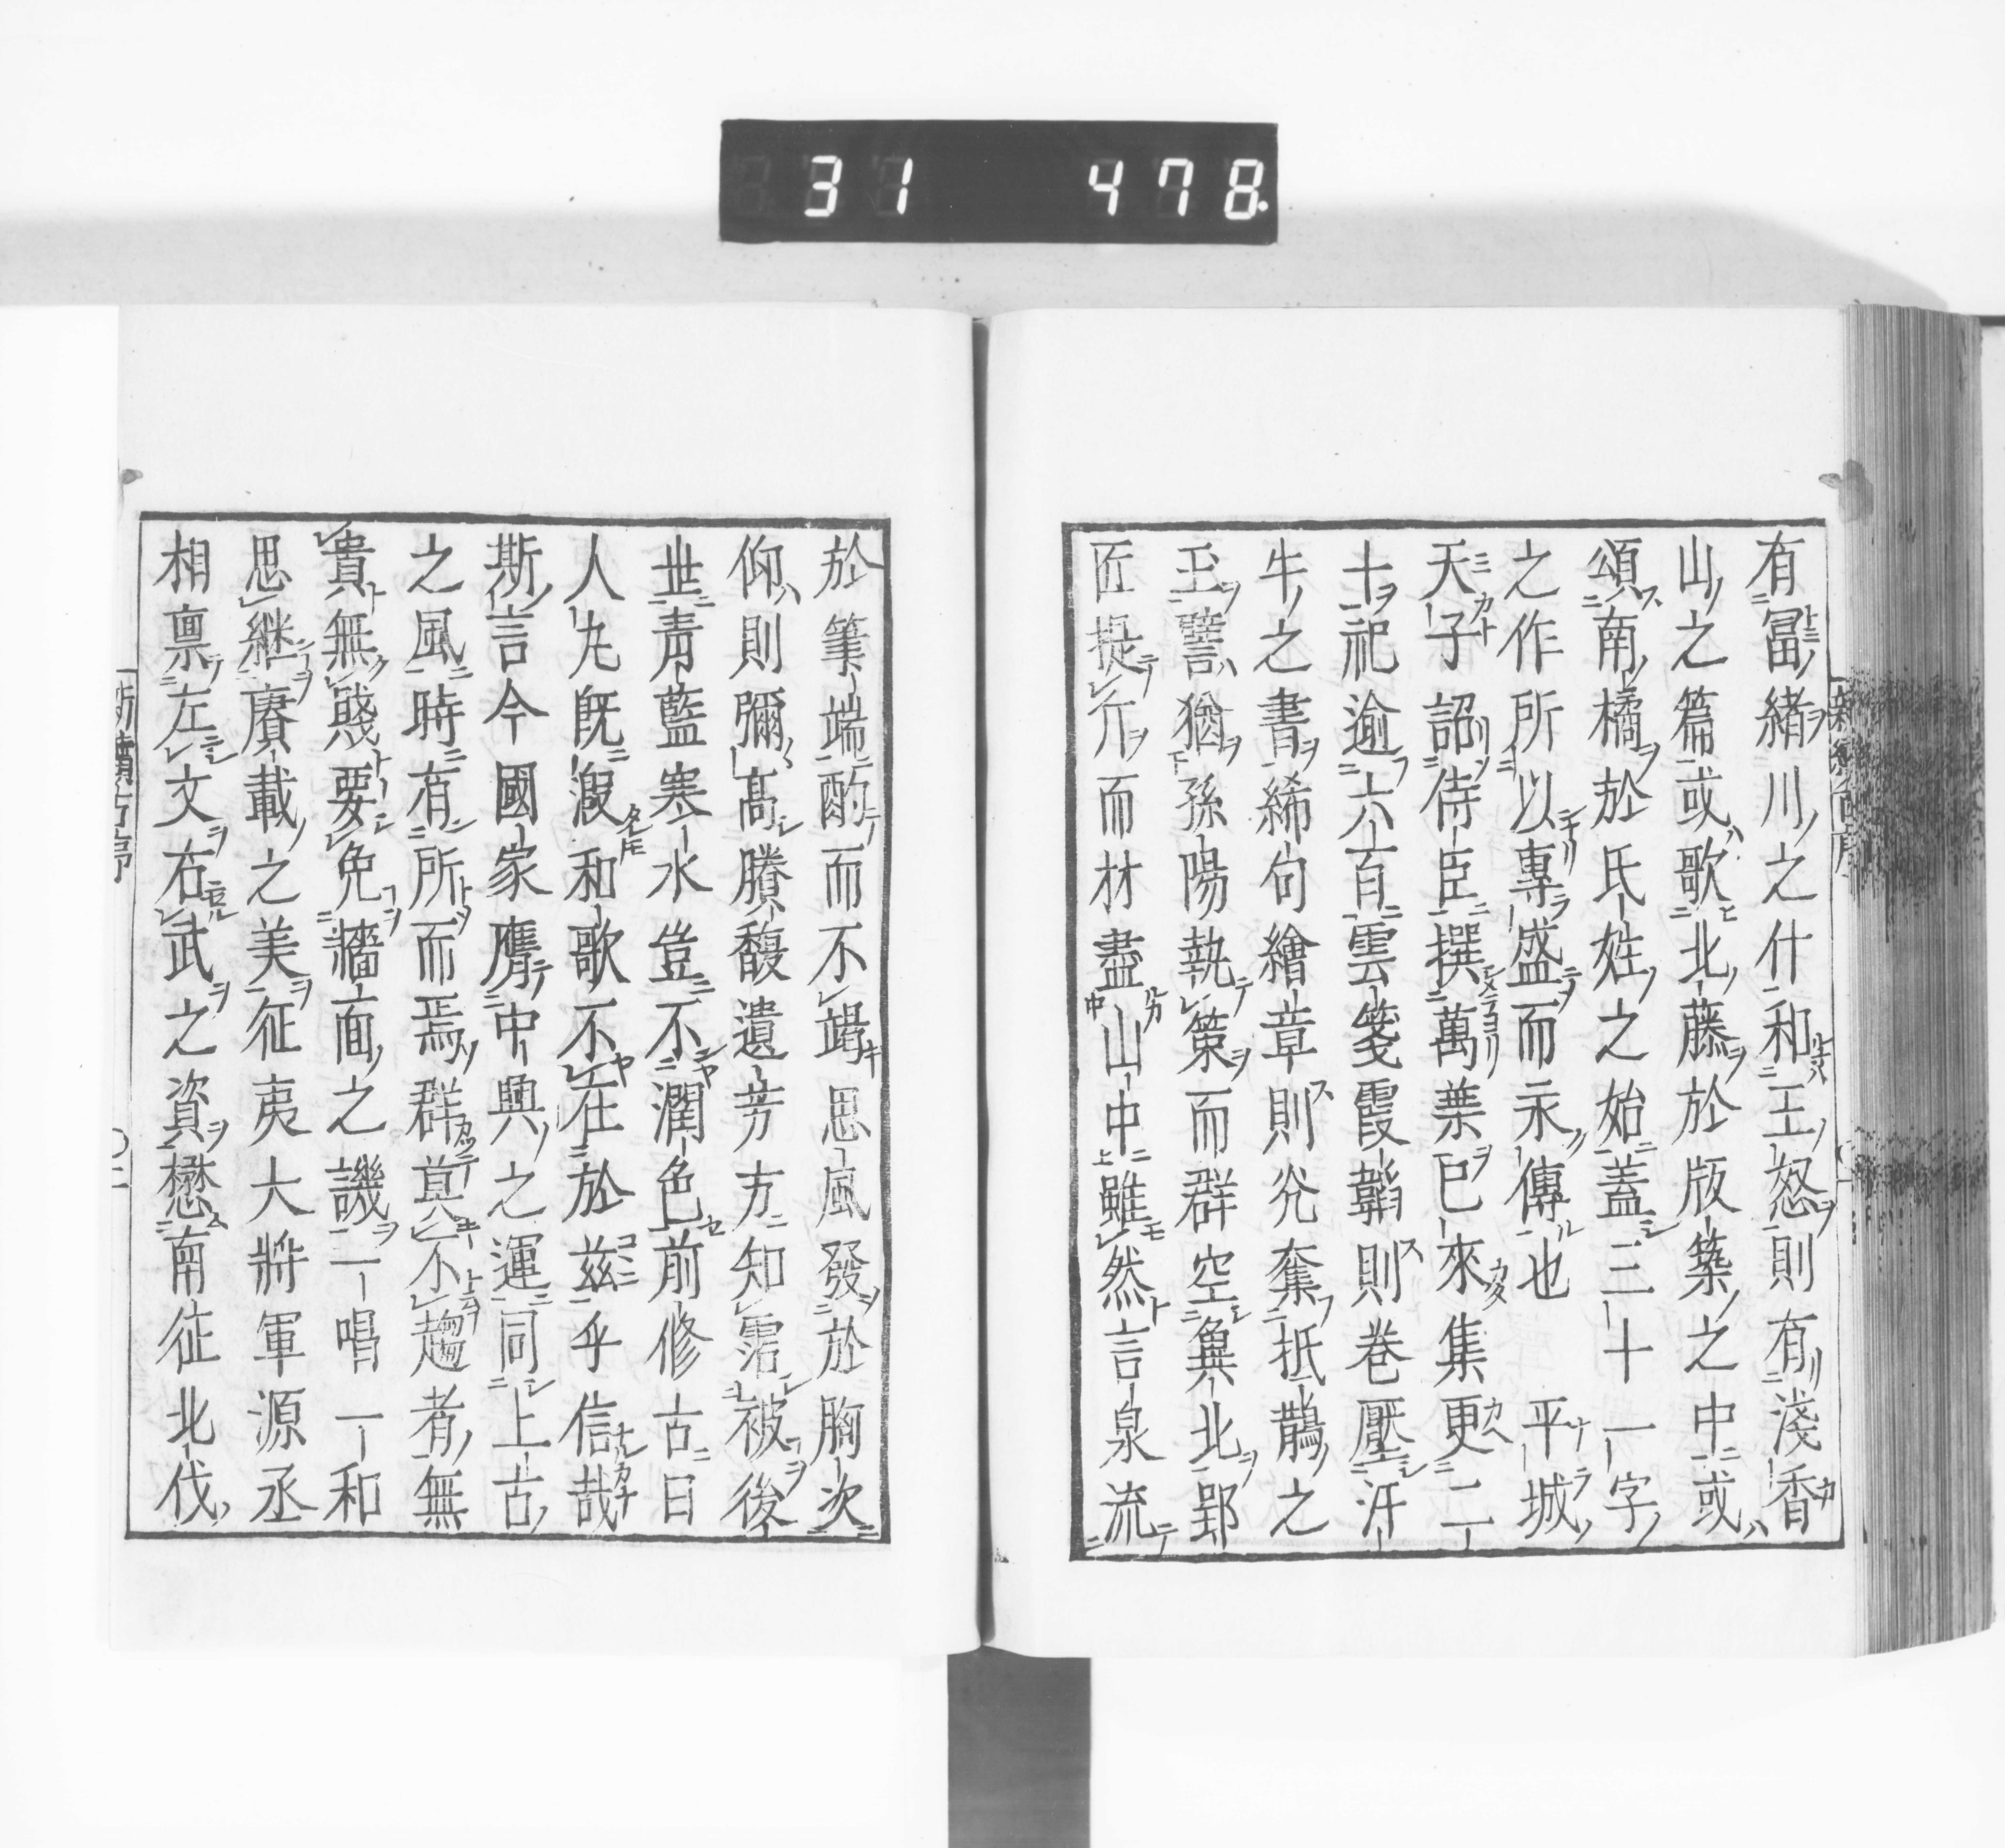 31 478
有冨緒川之什和王怒則有淺香
山之篇或歌北藤於版築之中或
頌南橘於氏姓之始蓋三十一字
之作所以專盛而永傳也 平城
天子詔侍臣撰萬葉已來集更二
十祀逾六百雲箋霞韜則卷壓汗
牛之書絺句繪章則光奪抵鵲之
玉譬猶孫陽執策而群空冀北郢
匠提斤而材盡山中雖然言泉流
於筆端酌而不竭思風發於胸次
仰則彌高賸馥遺芳方知霑被後
世青藍寒水豈不潤色前修古日
人丸既没和歌不在於茲乎信哉
斯言今國家膺中興之運同上古
之風時有所而焉群莫不趨者無
貴無賤要免牆面之譏一唱一和
思繼賡載之美征夷大將軍源丞
相稟左文右武之資懋南征北伐